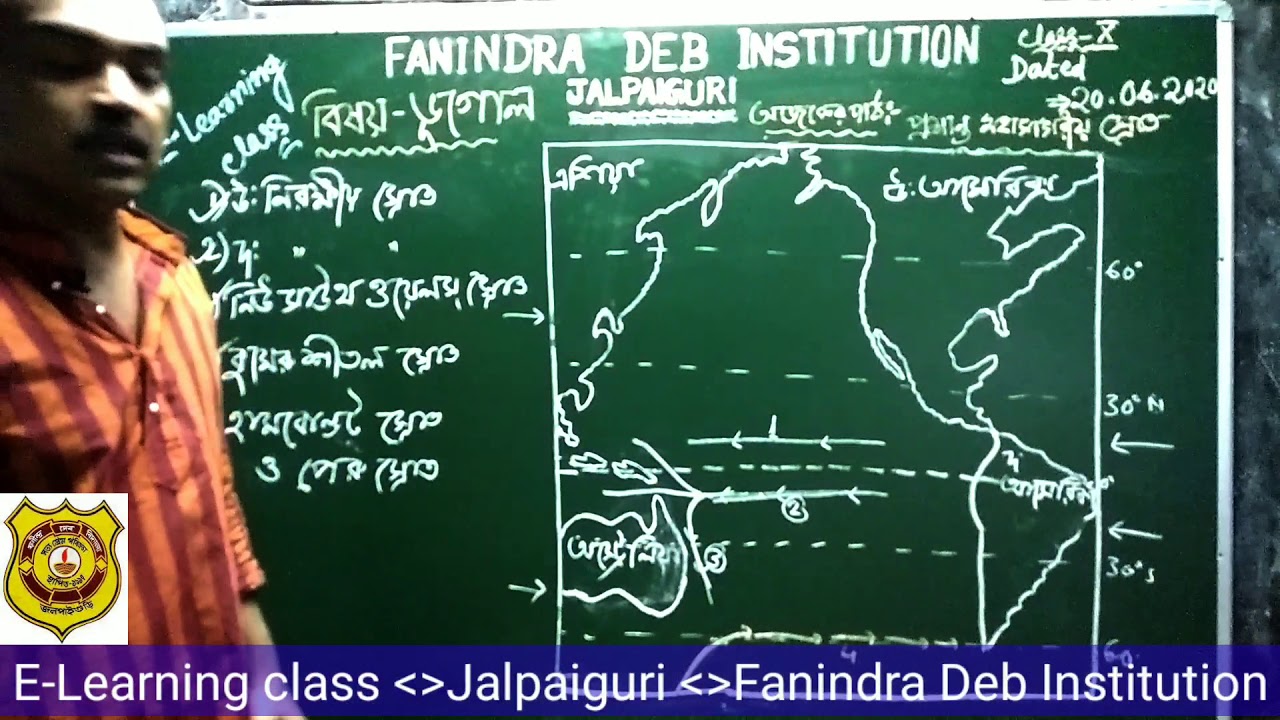 FANINDRA DEB INSTITUTION
JALPAIGURI
Class-X
Dated
20.06.2020
E-Learning
class
বিষয়-ভূগোল
আজকের পাঠঃ প্রশান্ত মহাসাগরীয় স্রোত
১) উঃ নিরক্ষীয় স্রোত
২) দঃ " "
নিউ সাউথ ওয়েলস্ স্রোত
কুমেরু শীতল স্রোত
হামবোল্ট স্রোত
ও পেরু স্রোত
এশিয়া
উঃ আমেরিকা
60°
30° N
1
দঃ
আমেরিকা
0°
২
অস্ট্রেলিয়া
৩
30° S
৪
60°
E-Learning class <>Jalpaiguri <>Fanindra Deb Institution